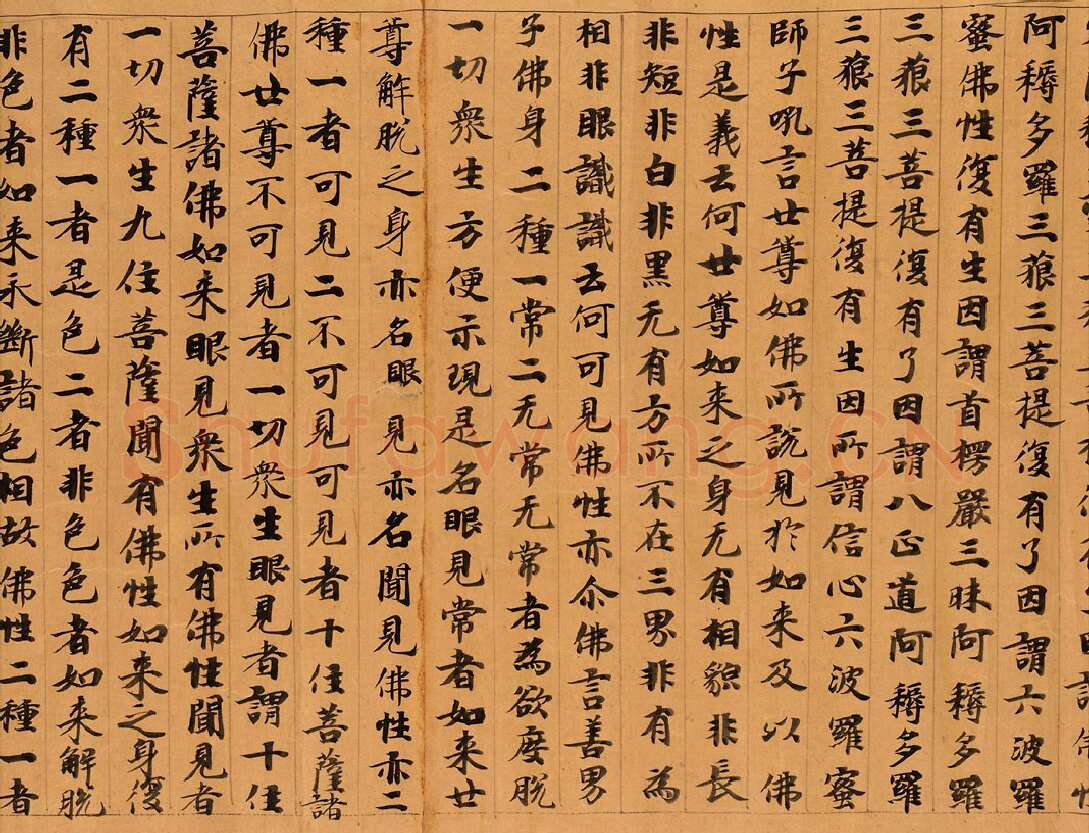 阿耨多羅三藐三菩提復有了因謂六波羅
蜜佛性復有生因謂首楞嚴三昧阿耨多羅
三藐三菩提復有了因謂八正道阿耨多羅
三藐三菩提復有生因所謂信心六波羅蜜
師子吼言世尊如佛所說見於如来及以佛
性是義云何世尊如来之身无有相貌非長
非短非白非黑无有方所不在三界非有為
相非眼識識云何可見佛性亦尒佛言善男
子佛身二種一常二无常无常者為欲度脫
一切衆生方便示現是名眼見常者如来世
尊解脫之身亦名眼見亦名聞見佛性亦二
種一者可見二不可見可見者十住菩薩諸
佛世尊不可見者一切衆生眼見者謂十住
菩薩諸佛如来眼見衆生所有佛性聞見者
一切衆生九住菩薩聞有佛性如来之身復
有二種一者是色二者非色色者如来解脫
非色者如来永斷諸色相故佛性二種一者
Shufawang.CN